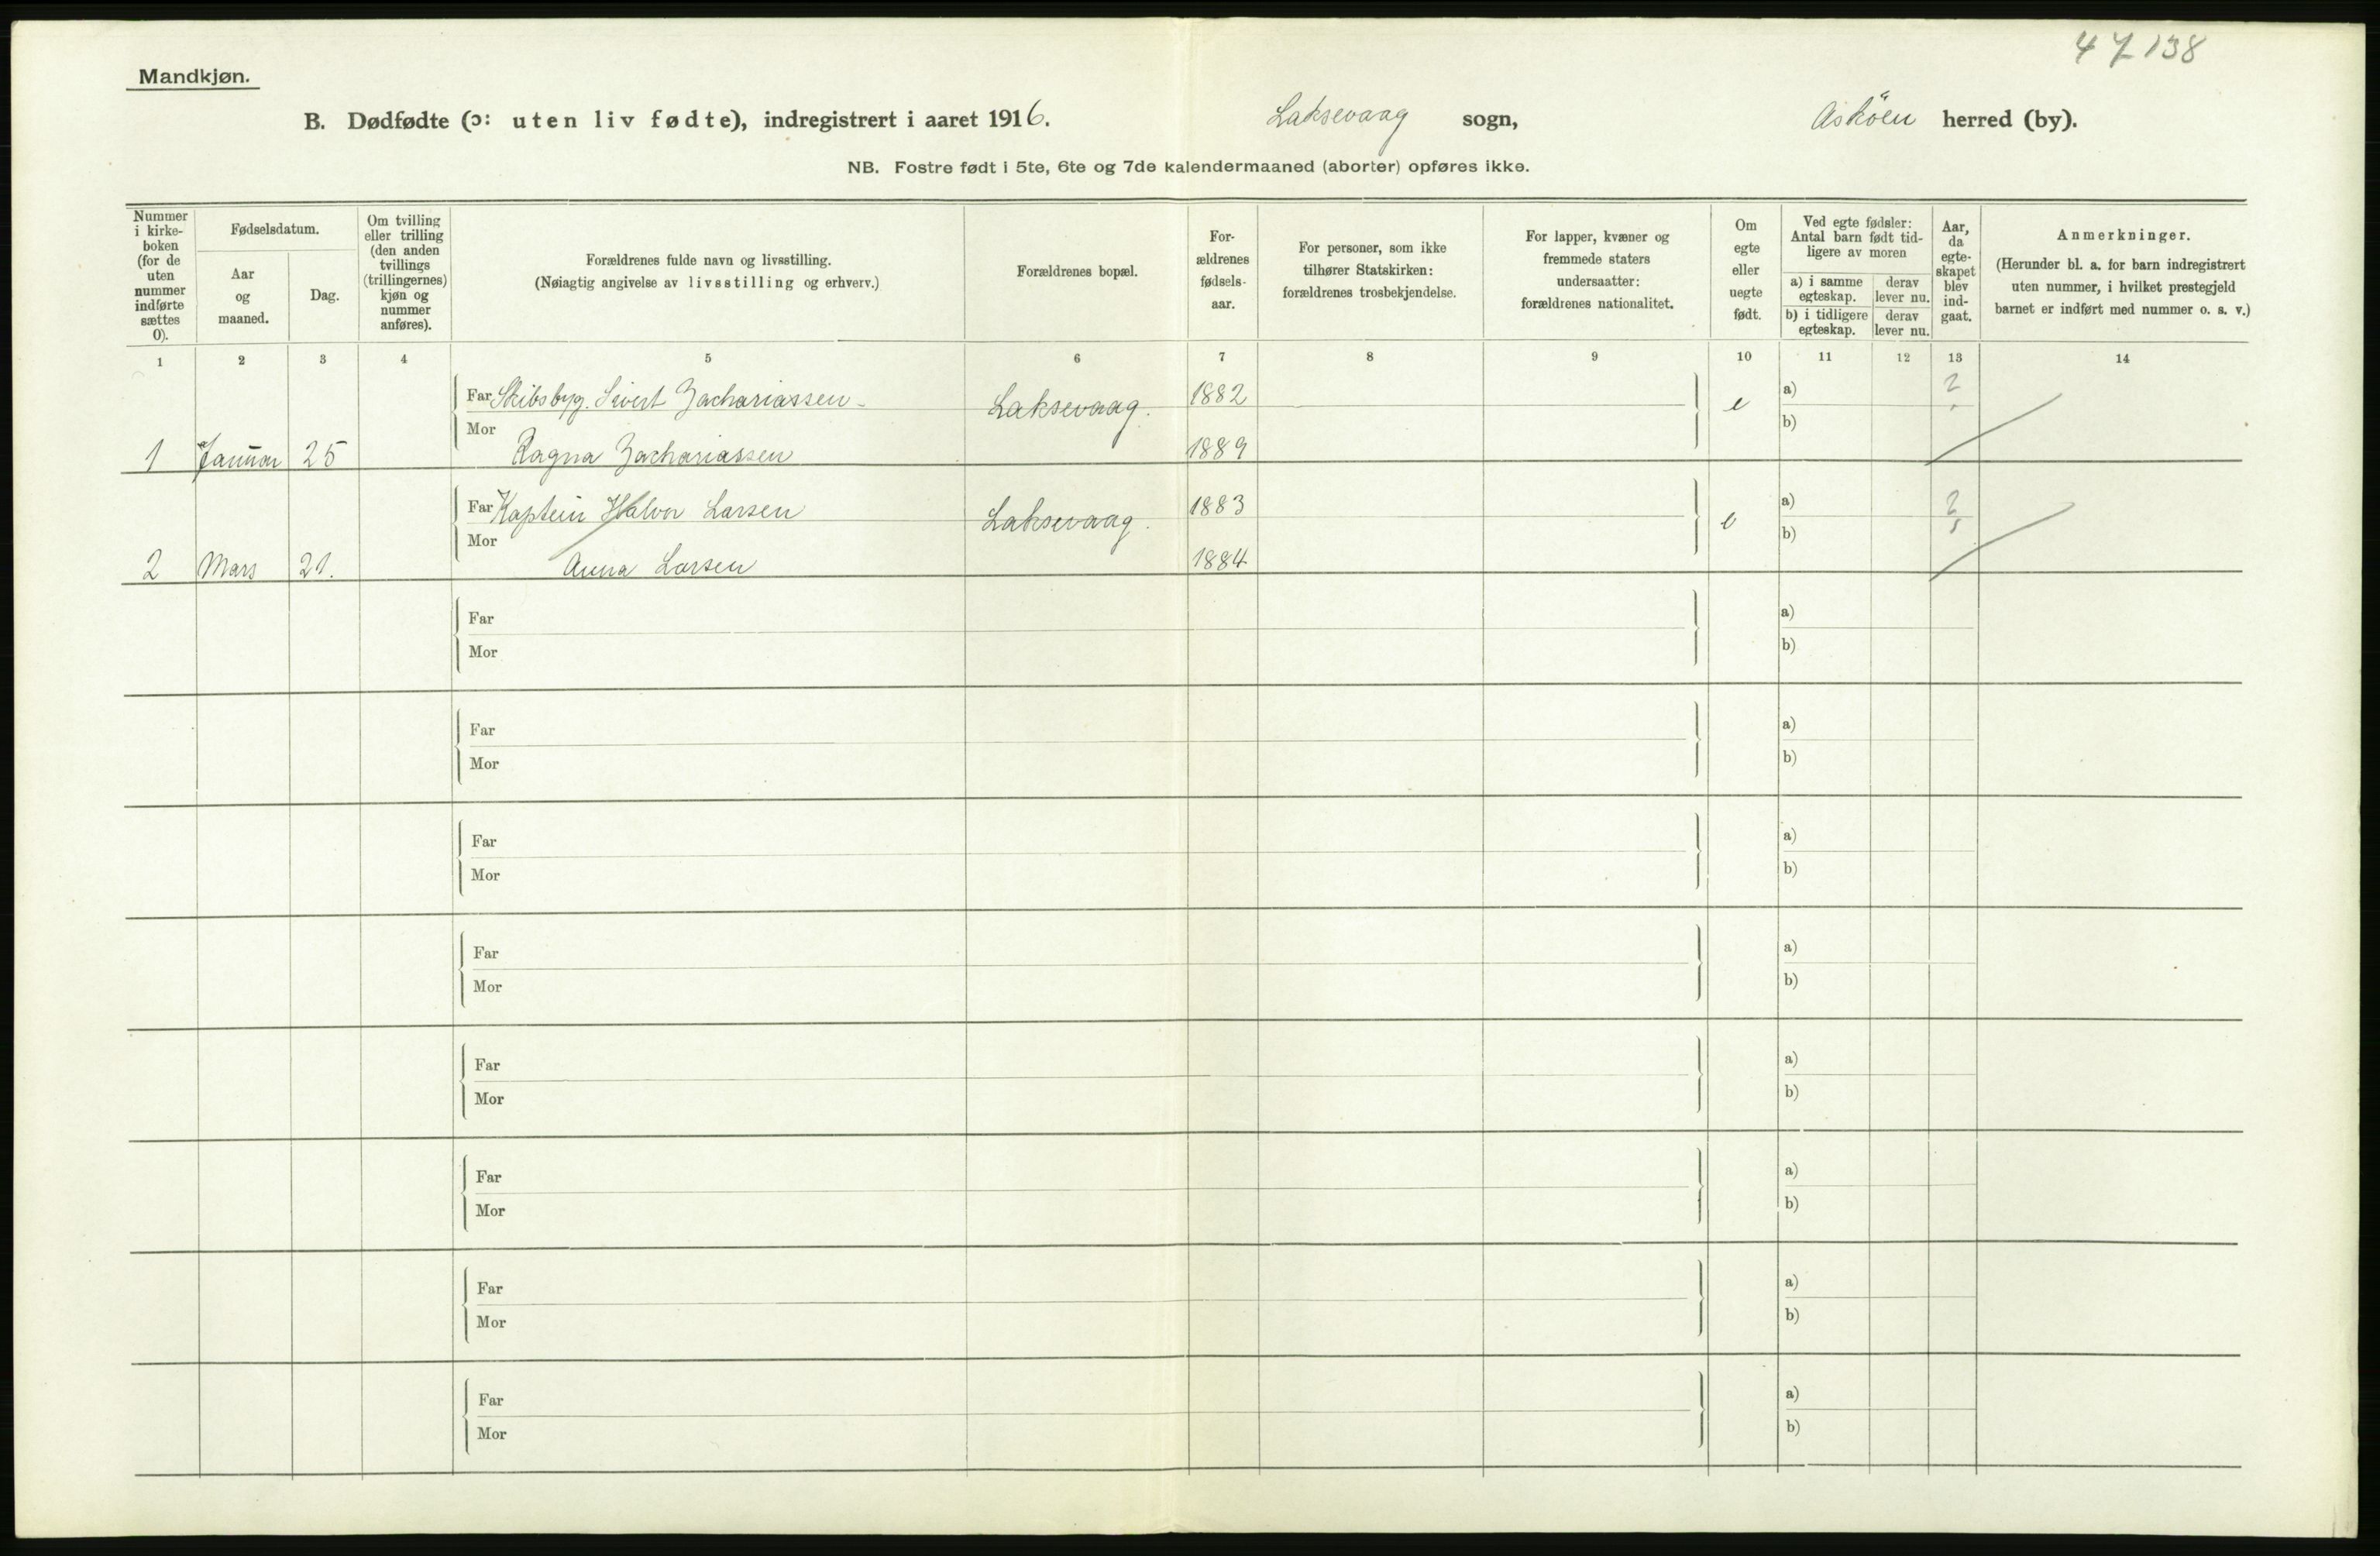 47138
Mandkjøn.
B. Dødfødte (ɔ: uten liv fødte), indregistrert i aaret 1916. Laksevaag sogn, Asköen herred (by).
NB. Fostre født i 5te, 6te og 7de kalendermaaned (aborter) opføres ikke.
Nummer
i kirke-
boken
(for de
uten
nummer
indførte
sættes
0).
Fødselsdatum.
Aar
og
maaned.
Dag.
Om tvilling
eller trilling
(den anden
tvillings
(trillingernes)
kjøn og
nummer
anføres).
Forældrenes fulde navn og livsstilling.
(Nøiagtig angivelse av livsstilling og erhverv.)
Forældrenes bopæl.
For-
ældrenes
fødsels-
aar.
For personer, som ikke
tilhører Statskirken:
forældrenes trosbekjendelse.
For lapper, kvæner og
fremmede staters
undersaatter:
forældrenes nationalitet.
Om
egte
eller
uegte
født.
Ved egte fødsler:
Antal barn født tid-
ligere av moren
a) i samme
egteskap.
derav
lever nu.
b) i tidligere
egteskap.
derav
lever nu.
Aar,
da
egte-
skapet
blev
ind-
gaat.
Anmerkninger.
(Herunder bl. a. for barn indregistrert
uten nummer, i hvilket prestegjeld
barnet er indført med nummer o. s. v.)
1 2 3 4 5 6 7 8 9 10 11 12 13 14
Far Skibsbyg. Sivert Zachariassen Laksevaag. 1882 e a) ?
Mor b)
1 Januar 25 Ragna Zachariassen 1889
Far Kaptein Halvor Larsen Laksevaag. 1883 e a) ?
Mor b)
2 Mars 21. Anna Larsen 1884
Far a)
Mor b)
Far a)
Mor b)
Far a)
Mor b)
Far a)
Mor b)
Far a)
Mor b)
Far a)
Mor b)
Far a)
Mor b)
Far a)
Mor b)